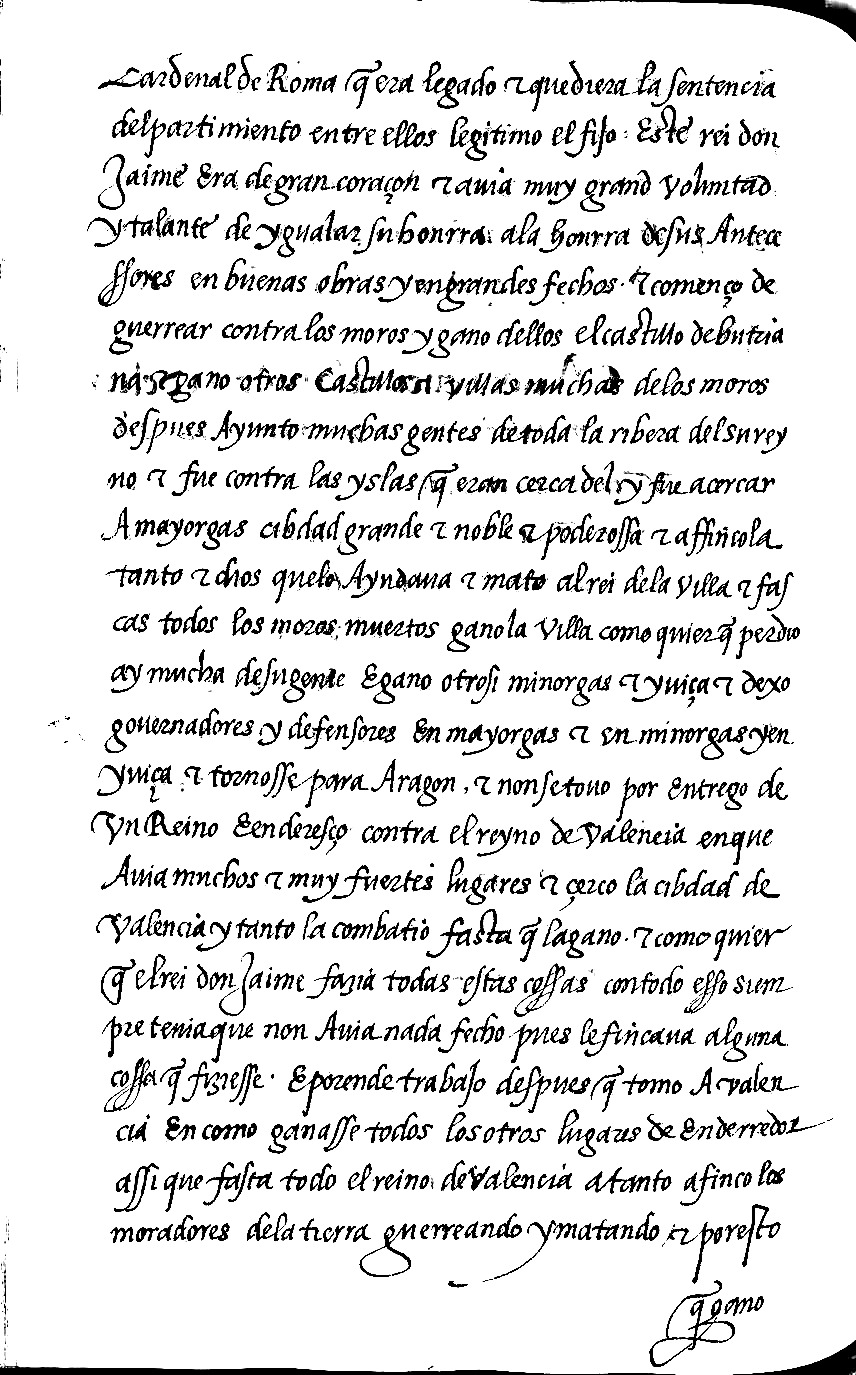 Cardenal de Roma q̃ era legado τ que diera la sentencia
del partimiento entre ellos legitimo el fijo · Este rei don
Jaime Era de gran coraçon τ avia muy grand voluntad
y talante de ygualar su honrra ala honrra de sus Antece
ssores en buenas obras y en grandes fechos · τ començo de
guerrear contra los moros y gano dellos el castillo de butria
na τ gano otros Castillos τ villas muchas de los moros
despues Ayunto muchas gentes de toda la ribera del su rey
no τ fue contra las yslas q̃ eran cerca del y fue a cercar
A mayorgas cibdad grande τ noble τ poderossa τ affincola
tanto τ dios que lo Ayudava τ mato al rei de la villa τ fas
cas todos los moros muertos gano la villa como quier q̃ perdio
ay mucha de su gente E gano otrosi minorgas τ yviça τ dexo
governadores y defensores En mayorgas τ en minorgas y en
yviça τ tornosse para Aragon, τ non se tovo por Entrego de
Vn Reino E enderesço contra el reyno de Valencia en que
Avia muchos τ muy fuertes lugares τ çerco la cibdad de
Valencia y tanto la combatio fasta q̃ la gano · τ como quier
q̃ el rei don Jaime fazia todas estas cossas con todo esso siem
pre tenia que non Avia nada fecho pues le fincava alguna
cossa q̃ fiziesse · E porende trabajo despues q̃ tomo A valen
cia En como ganasse todos los otros lugares de Enderredor
assi que fasta todo el reino de Valencia a tanto afinco los
moradores de la tierra guerreando y matando τ por esto
q̃ gano